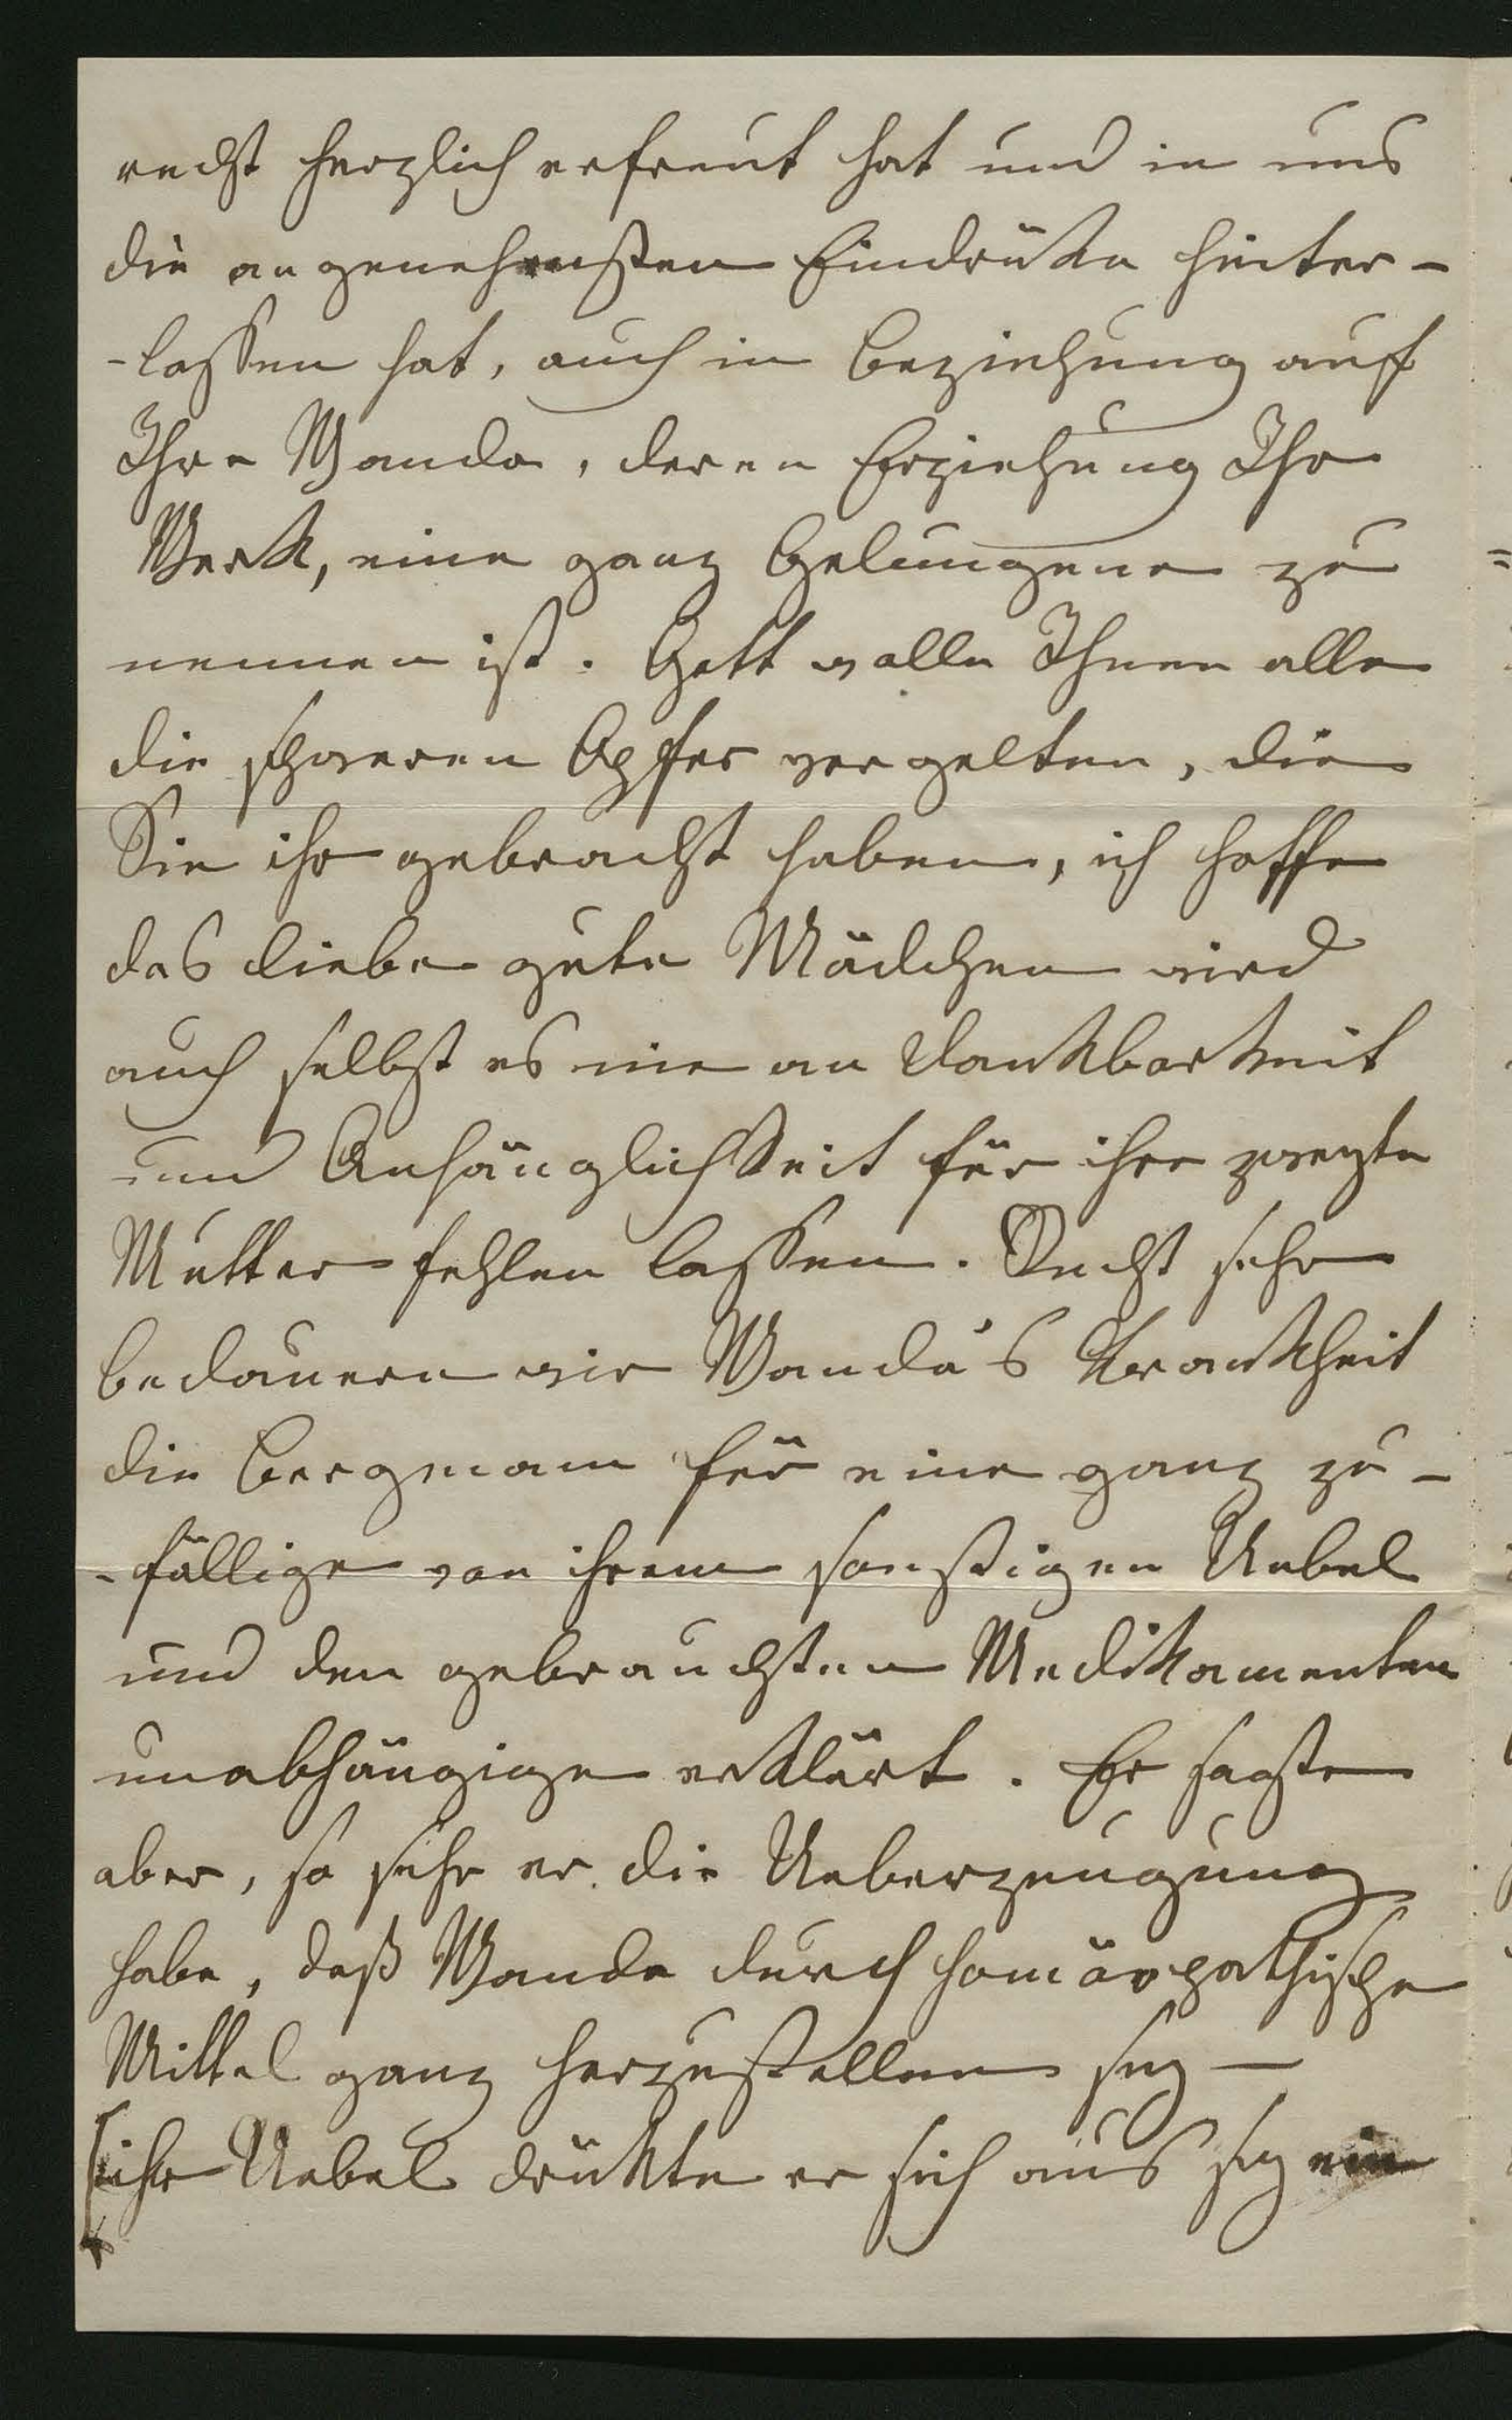 recht herzlich erfreut hat und in uns
die angenehmsten Eindrüke hinter-
-lassen hat, auch in Beziehung auf
Ihre Wanda, deren Erziehung Ihr
Werk, eine ganz Gelungene zu
nennen ist. Gott wolle Ihnen alle
die schweren Opfer vergelten, die
Sie ihr gebracht haben, ich hoffe
das liebe gute Mädchen wird
auch selbst es nie an Dankbarkeit
und Anhänglichkeit für ihre zweyte
Mutter fehlen lassen. Recht sehr
bedauern wir Wanda's Krankheit
die Bergmann für eine ganz zu-
-fällige von ihrem sonstigen Uebel
und den gebrauchten Medikamenten
unabhängige erklärt. Er sagte
aber, so sehr er die Ueberzeugung
habe, daß Wanda durch homöopathische
Mittel ganz herzustellen sey —
ihr Uebel drükte er sich aus sey ein